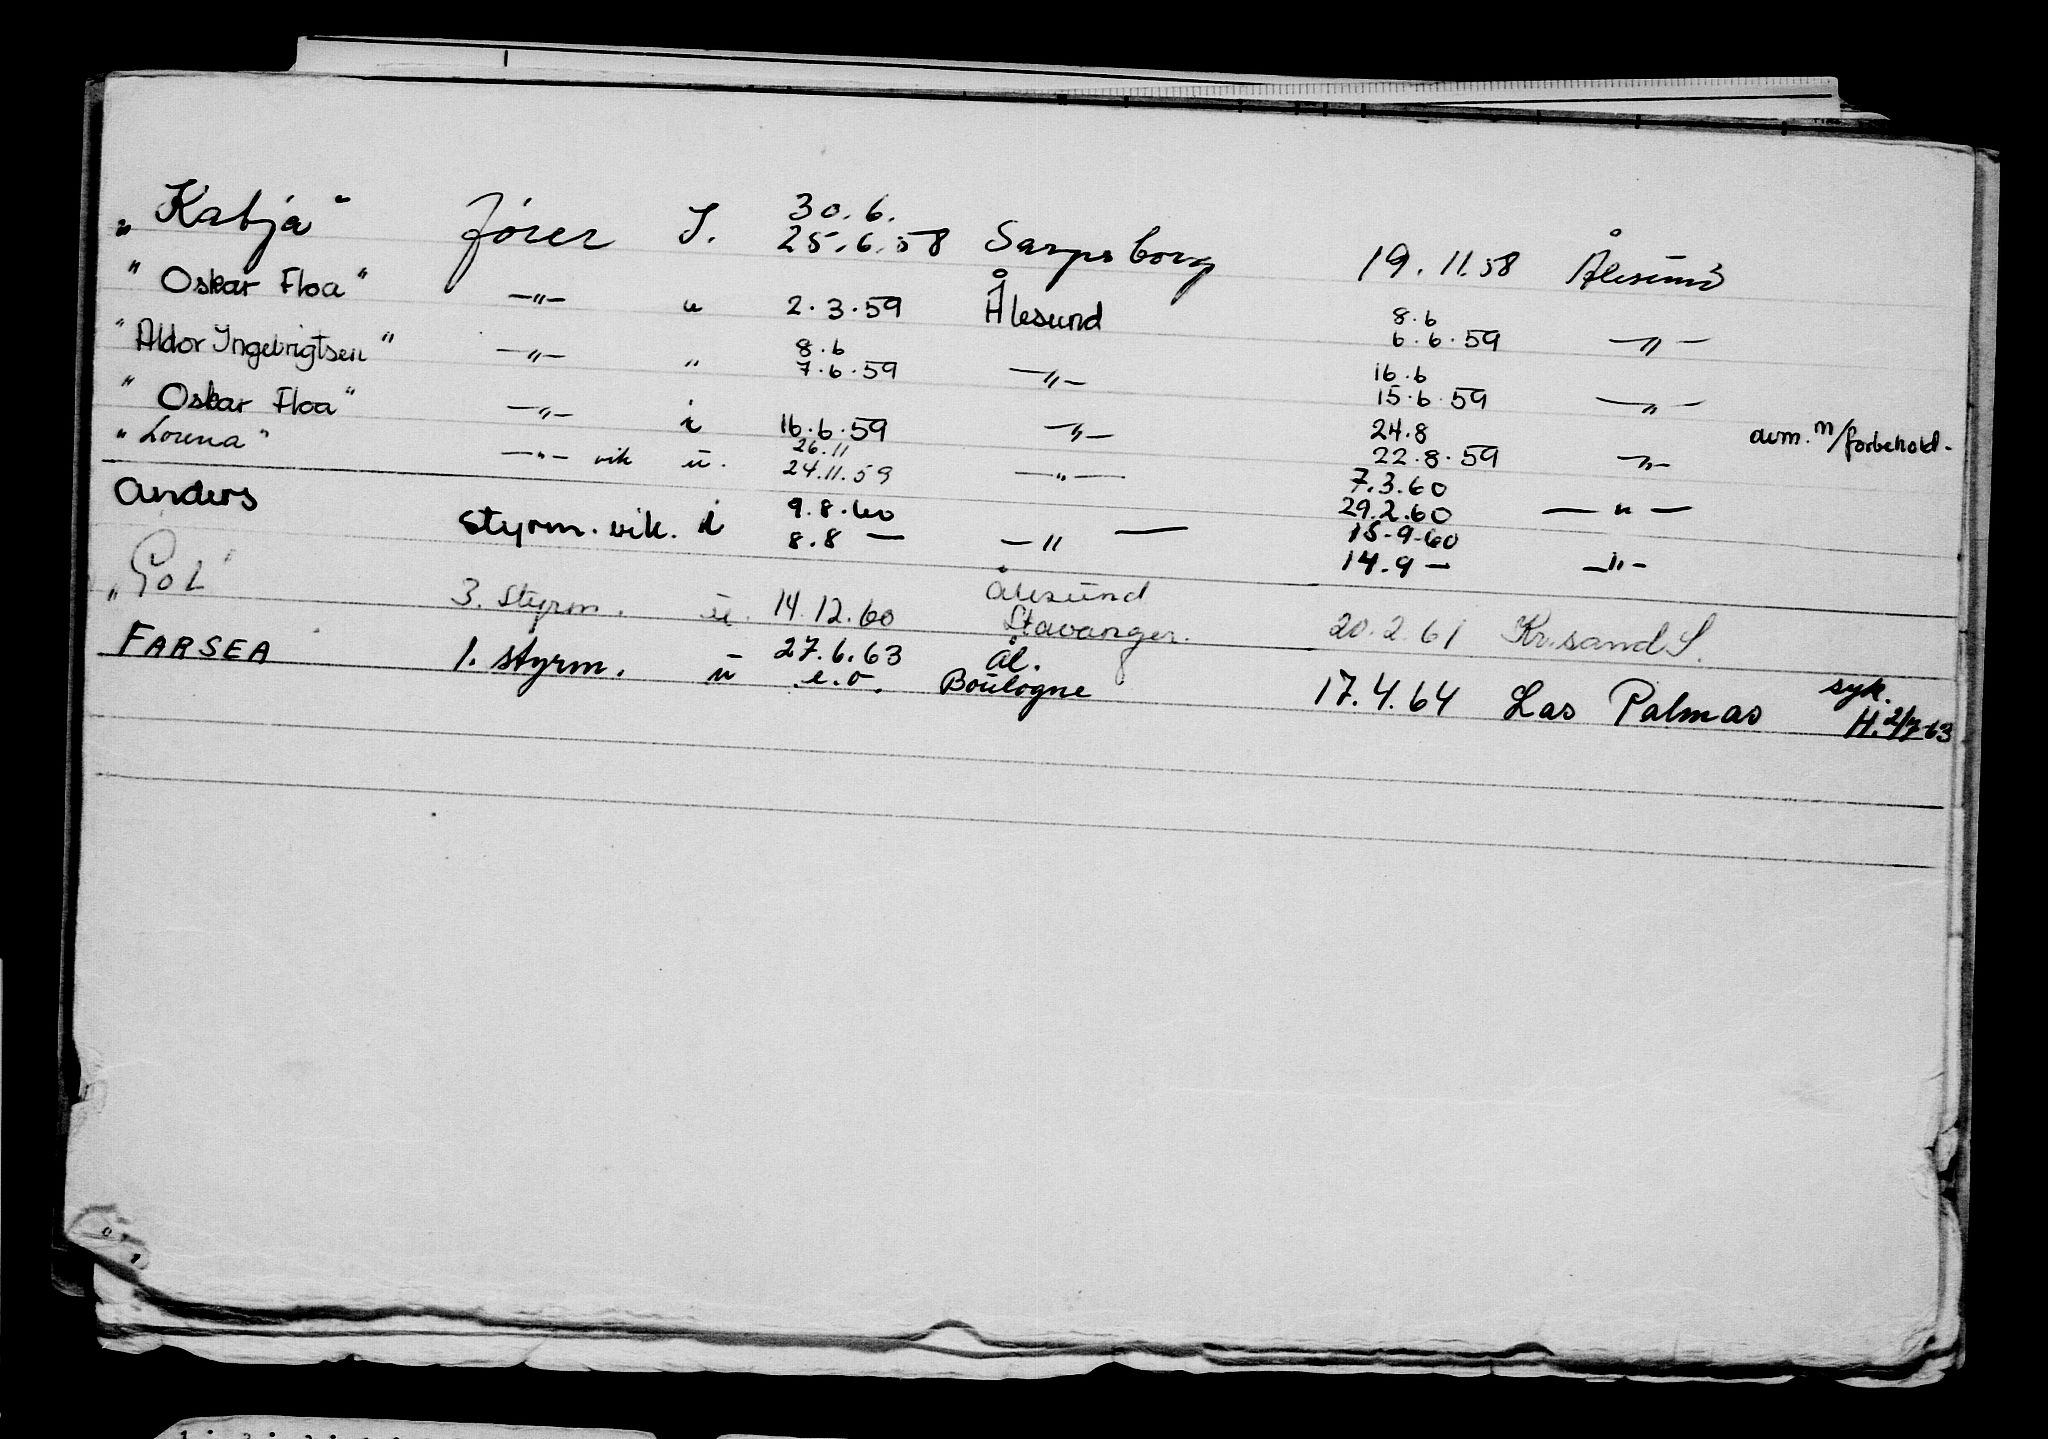 „Katja“ fører I. 30.6. 25.6.58 Sarpsborg 19.11.58 Ålesund
"Oskar Floa" —"— u 2.3.59 Ålesund 8.6 6.6.59 —"—
"Aldor Ingebrigtsen" —"— " 8.6 7.6.59 —"— 16.6 15.6.59 —"—
"Oskar Floa" —"— i 16.6.59 —"— 24.8 22.8.59 —"— avm. m/forbehold.
"Lorena" —"— vik u. 26.11 24.11.59 —"— 7.3.60 29.2.60 —"—
Anders styrm. vik. i 9.8.60 8.8 — —"— 15.9.60 14.9 — —"—
„Gol" 3. Styrm. u. 14.12.60 Ålesund Stavanger. 20.2.61 Kr.sand S.
FARSEA 1. styrm. u 27.6.63 e.o. Ål. Boulogne 17.4.64 Las Palmas syk. H. 2/7-63